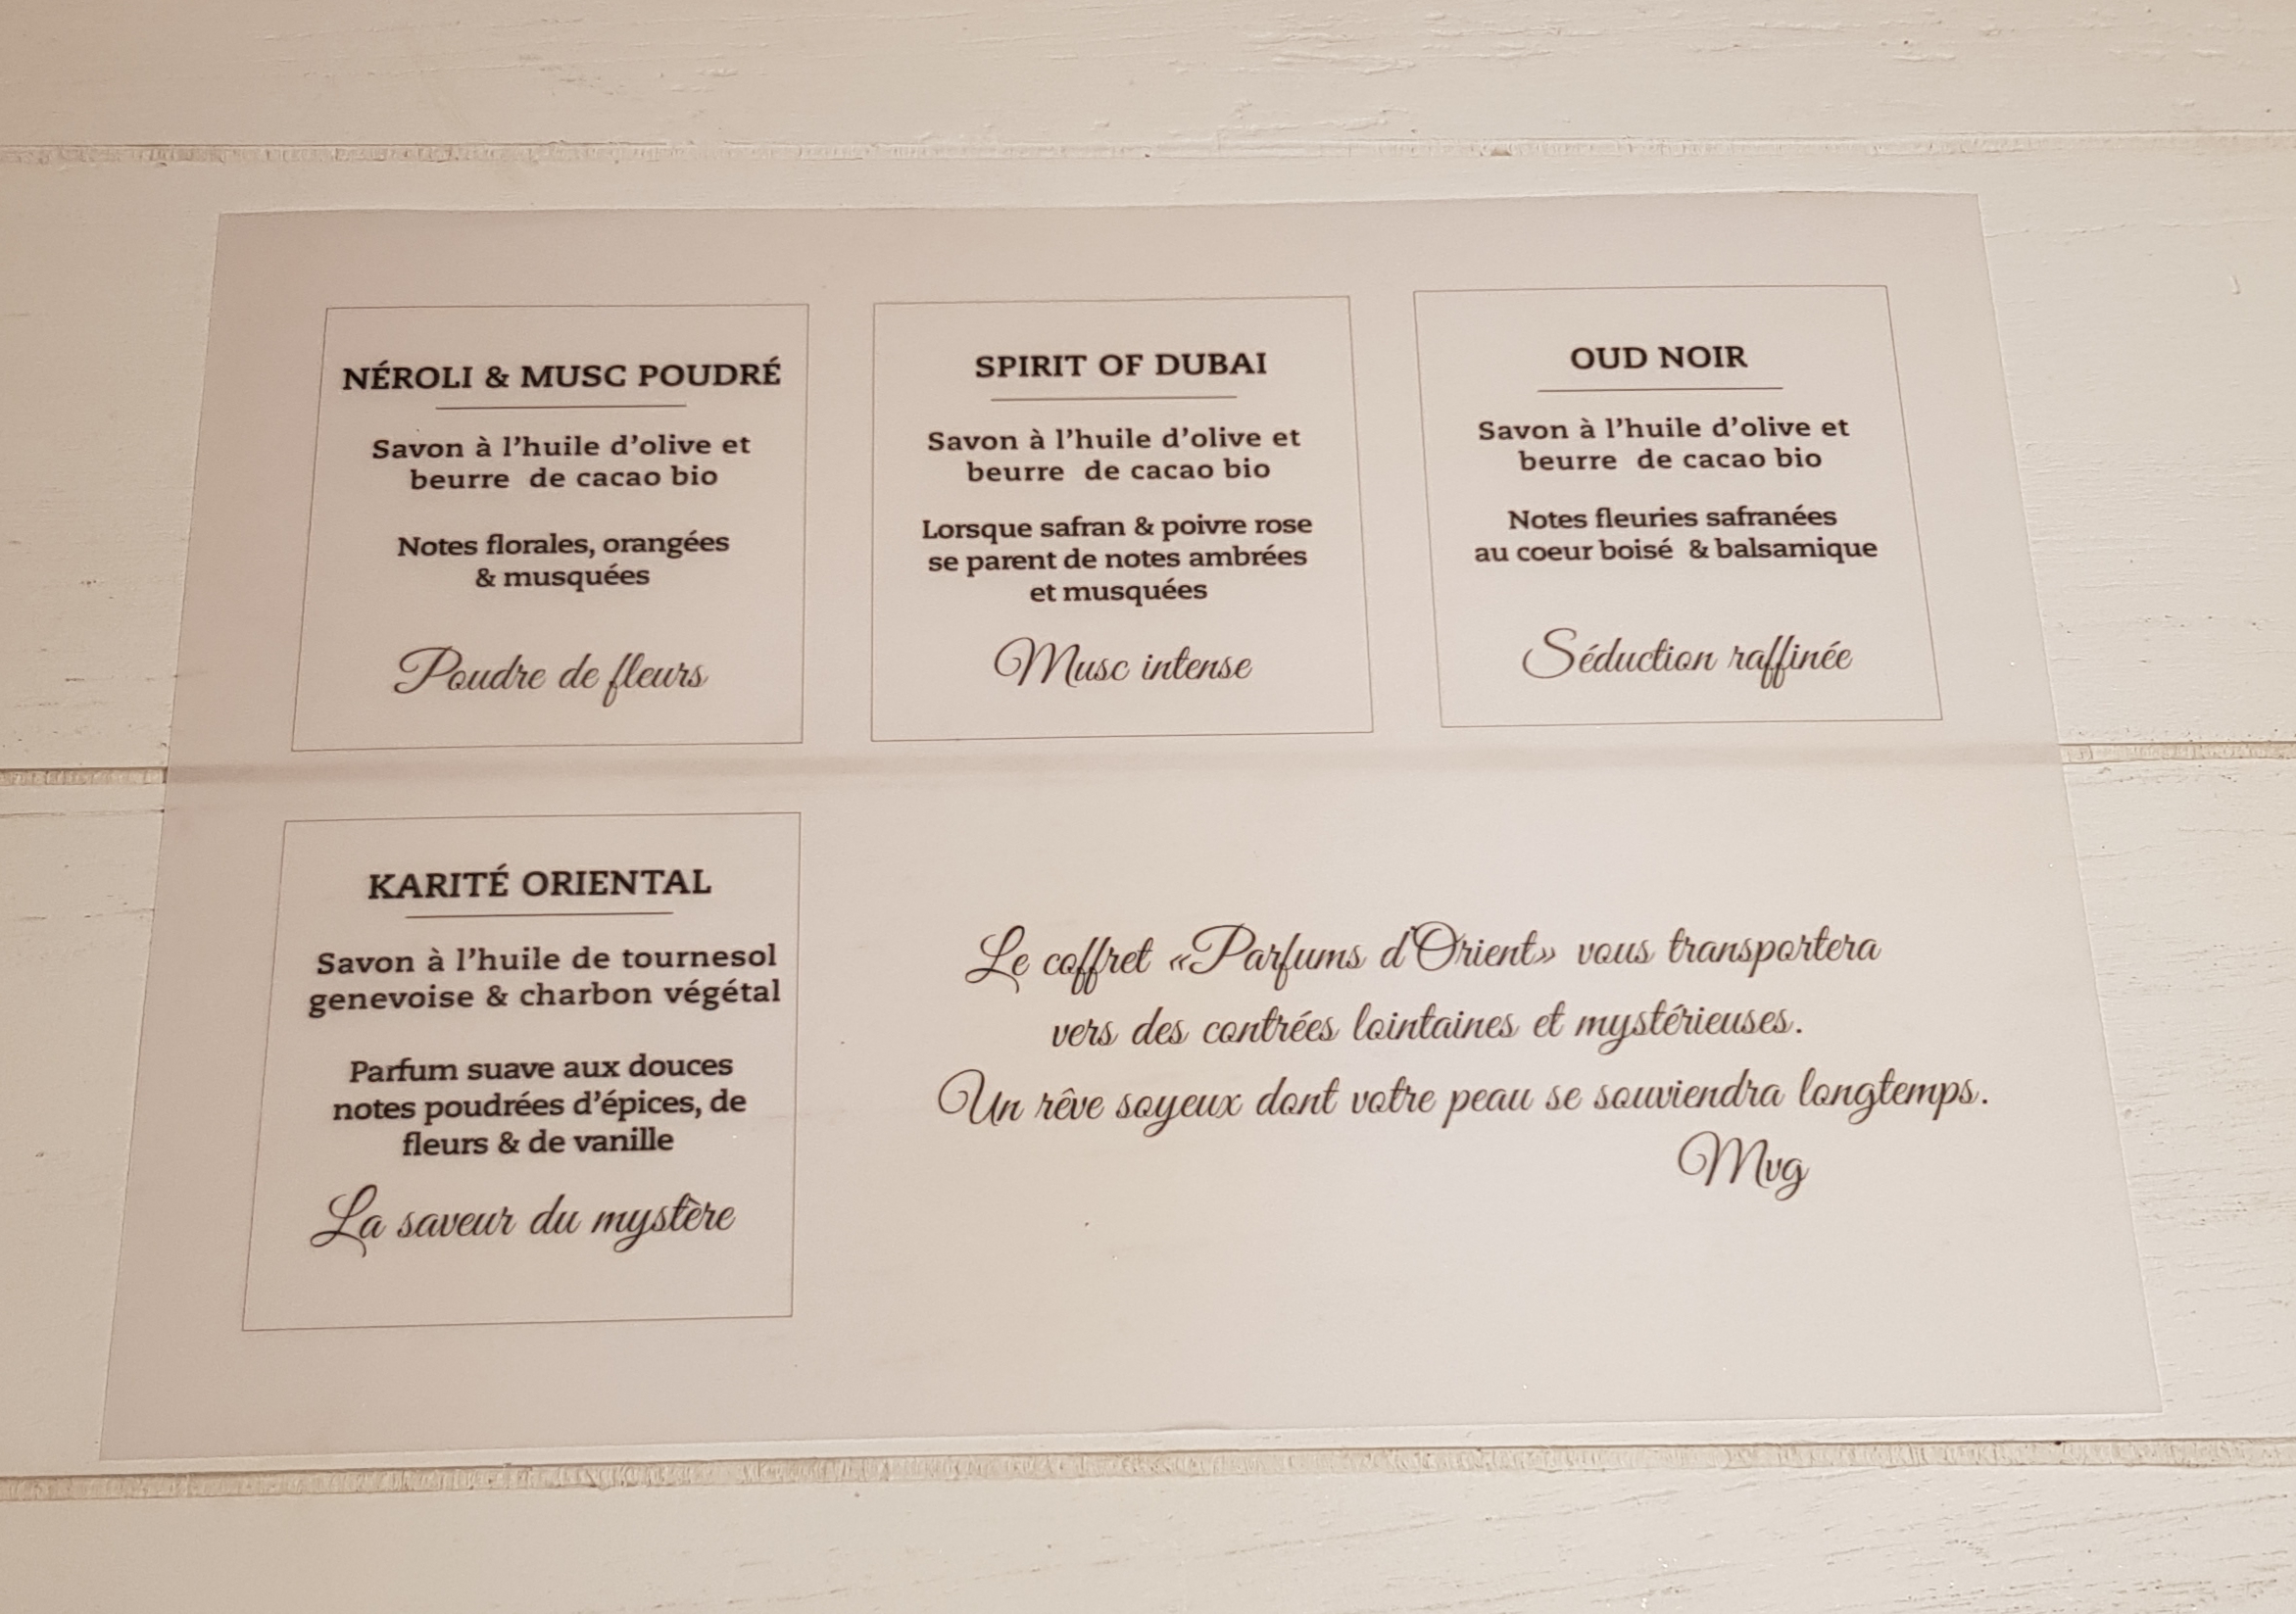 NÉROLI & MUSC POUDRÉ
Savon à l'huile d'olive et
beurre de cacao bio
Notes florales, orangées
& musquées
Poudre de fleurs
SPIRIT OF DUBAI
Savon à l'huile d'olive et
beurre de cacao bio
Lorsque safran & poivre rose
se parent de notes ambrées
et musquées
Musc intense
OUD NOIR
Savon à l'huile d'olive et
beurre de cacao bio
Notes fleuries safranées
au coeur boisé & balsamique
Séduction raffinée
KARITÉ ORIENTAL
Savon à l'huile de tournesol
genevoise & charbon végétal
Parfum suave aux douces
notes poudrées d'épices, de
fleurs & de vanille
La saveur du mystère
Le coffret «Parfums d'Orient» vous transportera
vers des contrées lointaines et mystérieuses.
Un rêve soyeux dont votre peau se souviendra longtemps.
Mvg